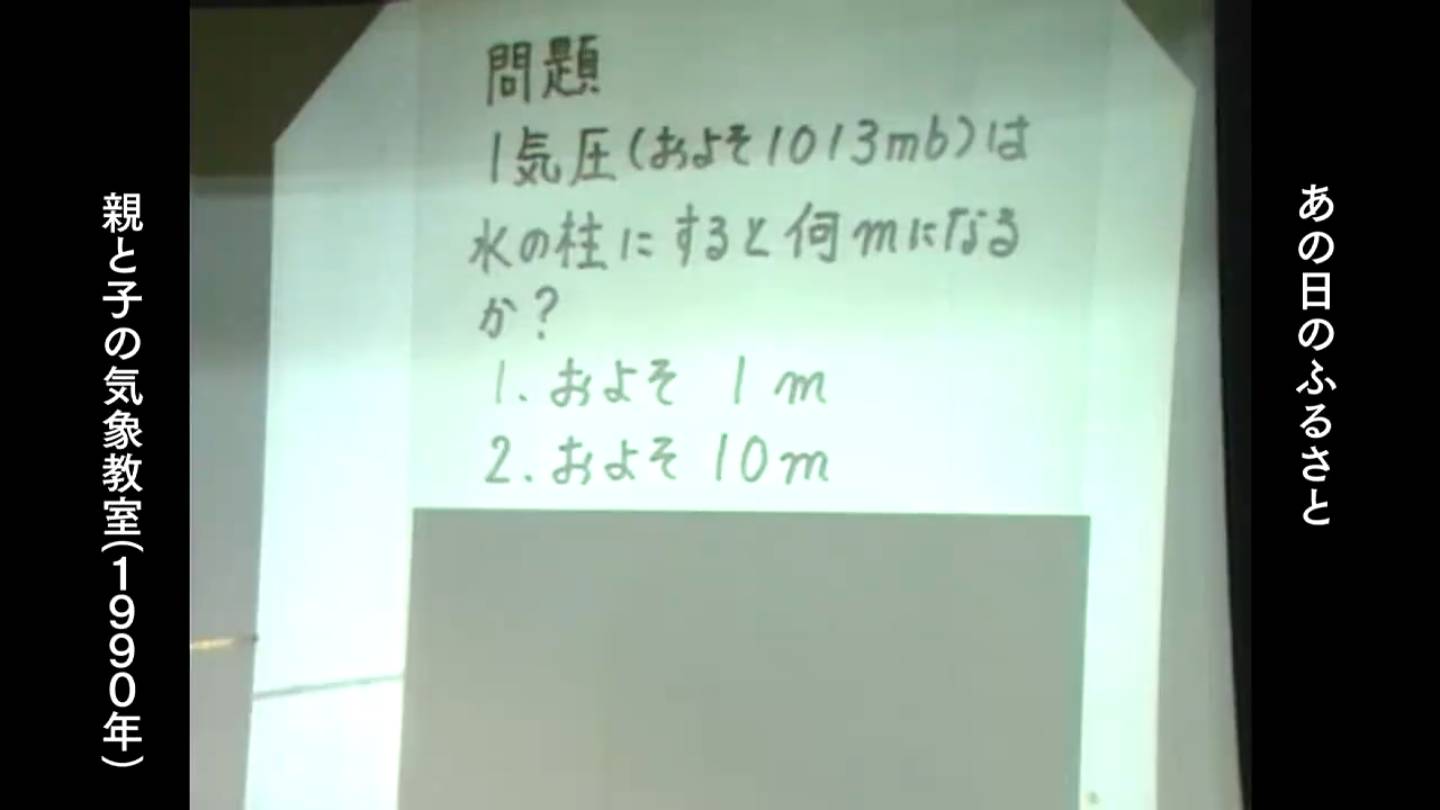 あの日のふるさと
問題
1気圧(およそ1013mb)は
水の柱にすると何mになる
か?
1.およそ 1m
2.およそ 10m
親と子の気象教室(1990年)